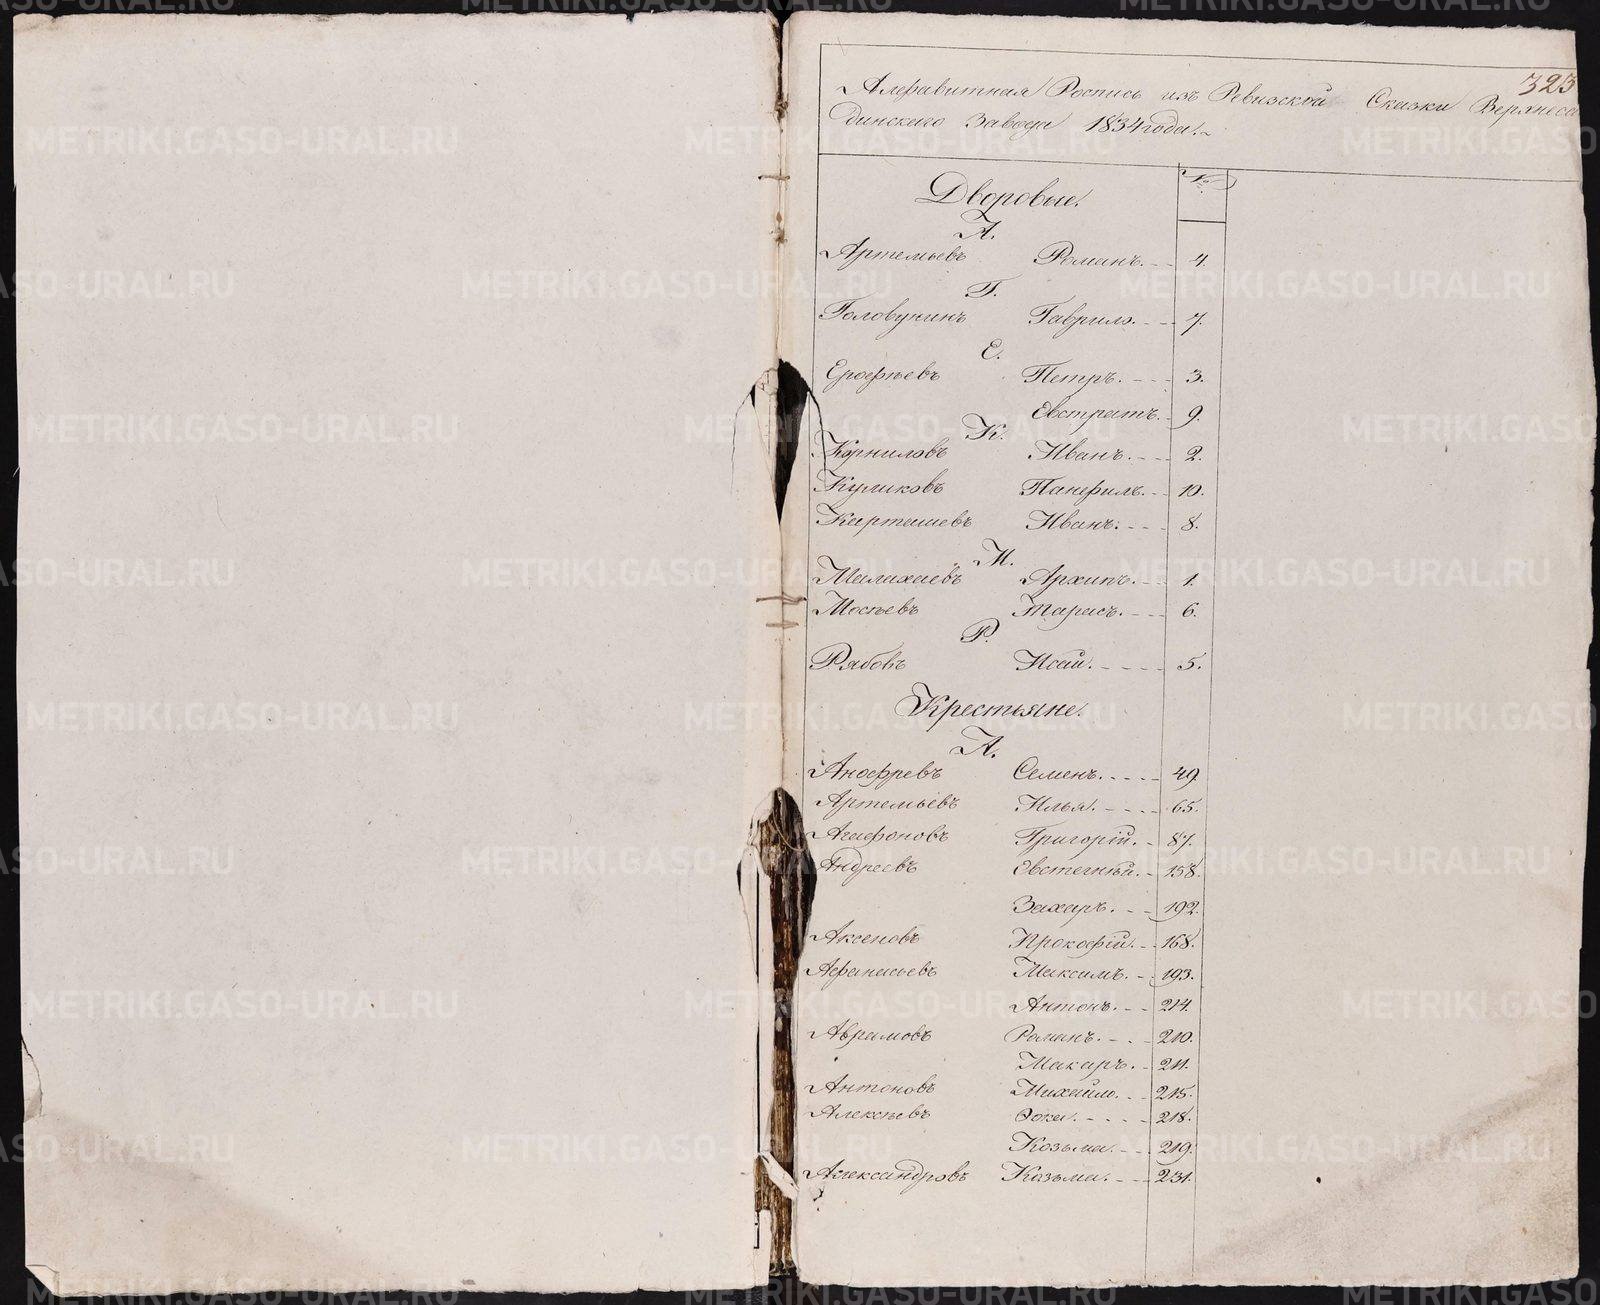 323
Алфавитная Роспись изъ Ревизской Сказки Верхнесал
динскаго Завода 1834 года.
№
Дворовые.
А.
Артемьевъ Романъ. 4.
Г.
Головунинъ Гаврило. 7.
Е.
Ерофѣевъ Петръ. 3.
Евстратъ. 9.
К.
Корниловъ Иванъ. 2.
Куликовъ Панфилъ. 10.
Карташевъ Иванъ. 8.
М.
Малихаевъ Архипъ. 1.
Мосѣевъ Тарасъ. 6.
Р.
Рябовъ Исай. 5.
Крестьяне.
А.
Анофревъ Семенъ. 49.
Артемьевъ Илья. 65.
Агафоновъ Григорій. 87.
Андреевъ Евстегнѣй. 158.
Захаръ. 192.
Аксеновъ Прокофій. 168.
Афанасьевъ Максимъ. 193.
Антонъ. 214.
Аврамовъ Романъ. 210.
Макаръ. 211.
Антоновъ Михайло. 215.
Алексѣевъ Фока. 218.
Козьма. 219.
Александровъ Козьма. 231.
METRIKI.GASO-URAL.RU